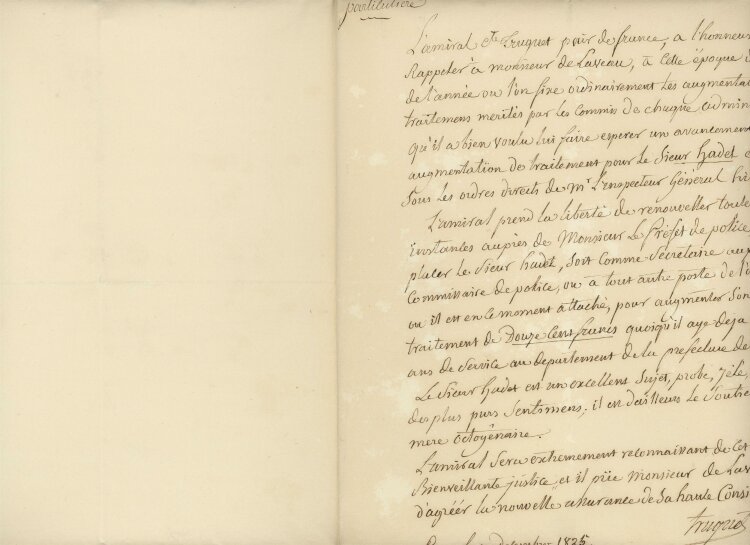 particulière
L'amiral Cte Truguet pair de france, a l'honneur
Rappeler à monsieur de Lavau, à cette époque
de l'année ou l'on fixe ordinairement les augmenta
traitemens mérités par les Commis de chaque admin
qu'il a bien voulu lui faire esperer un avancement
augmentation de traitement pour le Sieur hadet
Sous les ordres directs de mr L'inspecteur Général
L'amiral prend la liberté de renouveller toute
Instances auprès de Monsieur Le Préfet de police
placer le Sieur hadet, soit comme Secrétaire au
Commissaire de police, ou à tout autre poste de l'
ou il est en ce moment attaché, pour augmenter Son
traitement de Douze Cent francs quoiqu'il aye deja
ans de Service au departement de la prefecture de
Le Sieur hadet est un excellent Sujet, probe, zélé,
des plus purs Sentimens; il est dailleurs le Soutien
mere octogénaire.
L'amiral Sera extremement reconnaissant de cet
Bienveillante justice, et il prie Monsieur de Lav
d'agréér la nouvelle assurance de Sa haute Consi
Truguet
1825